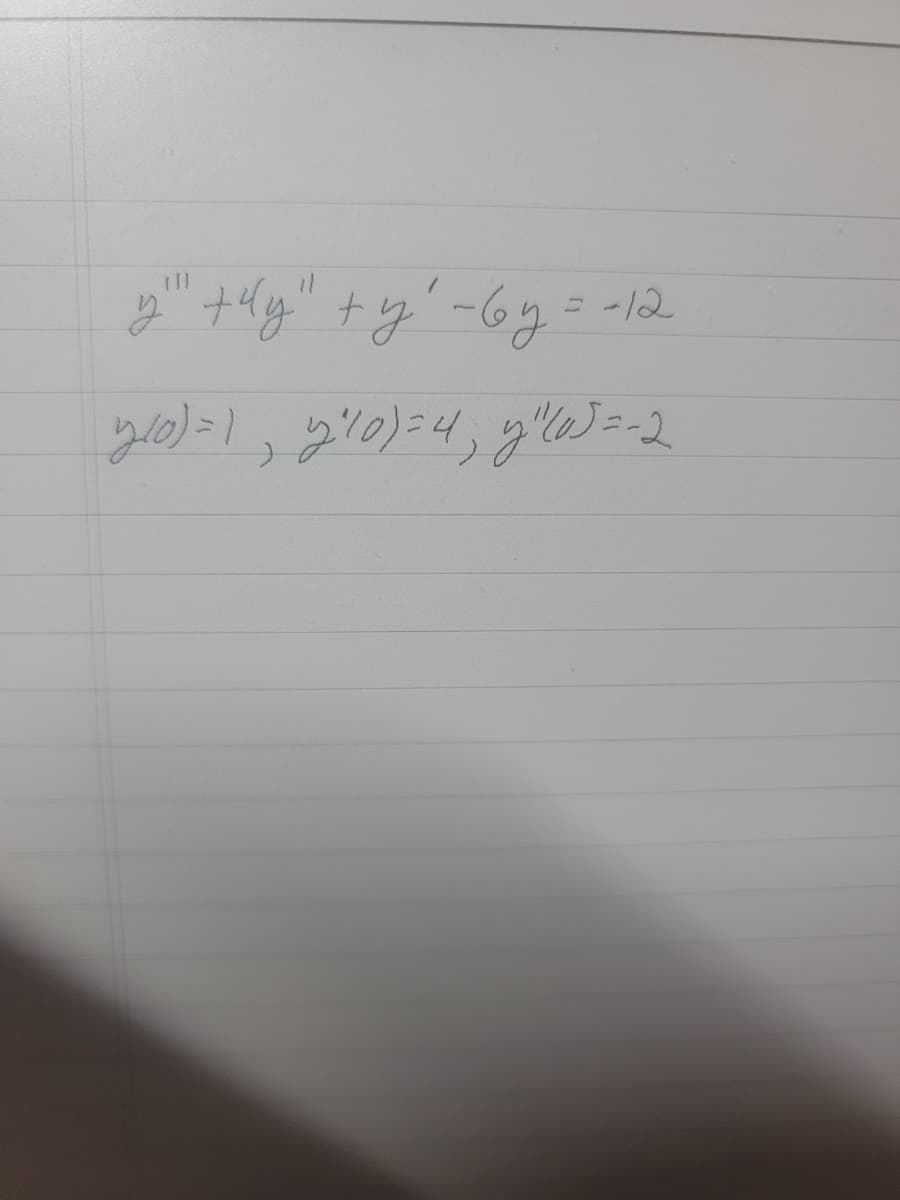 y''' + 4y'' + y' - 6y = -12
y(0) = 1, y'(0) = 4, y''(0) = -2